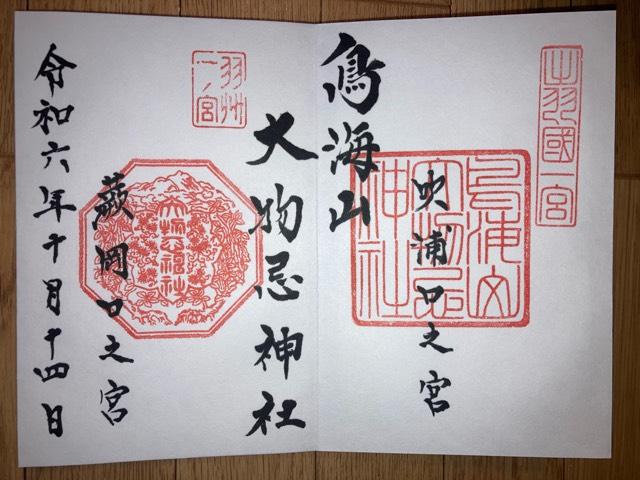 出羽國一宮
鳥海山
大物忌
神社
吹浦口之宮
鳥海山
大物忌神社
羽州
一ノ宮
大物忌神社
蕨岡口之宮
令和六年十月十四日